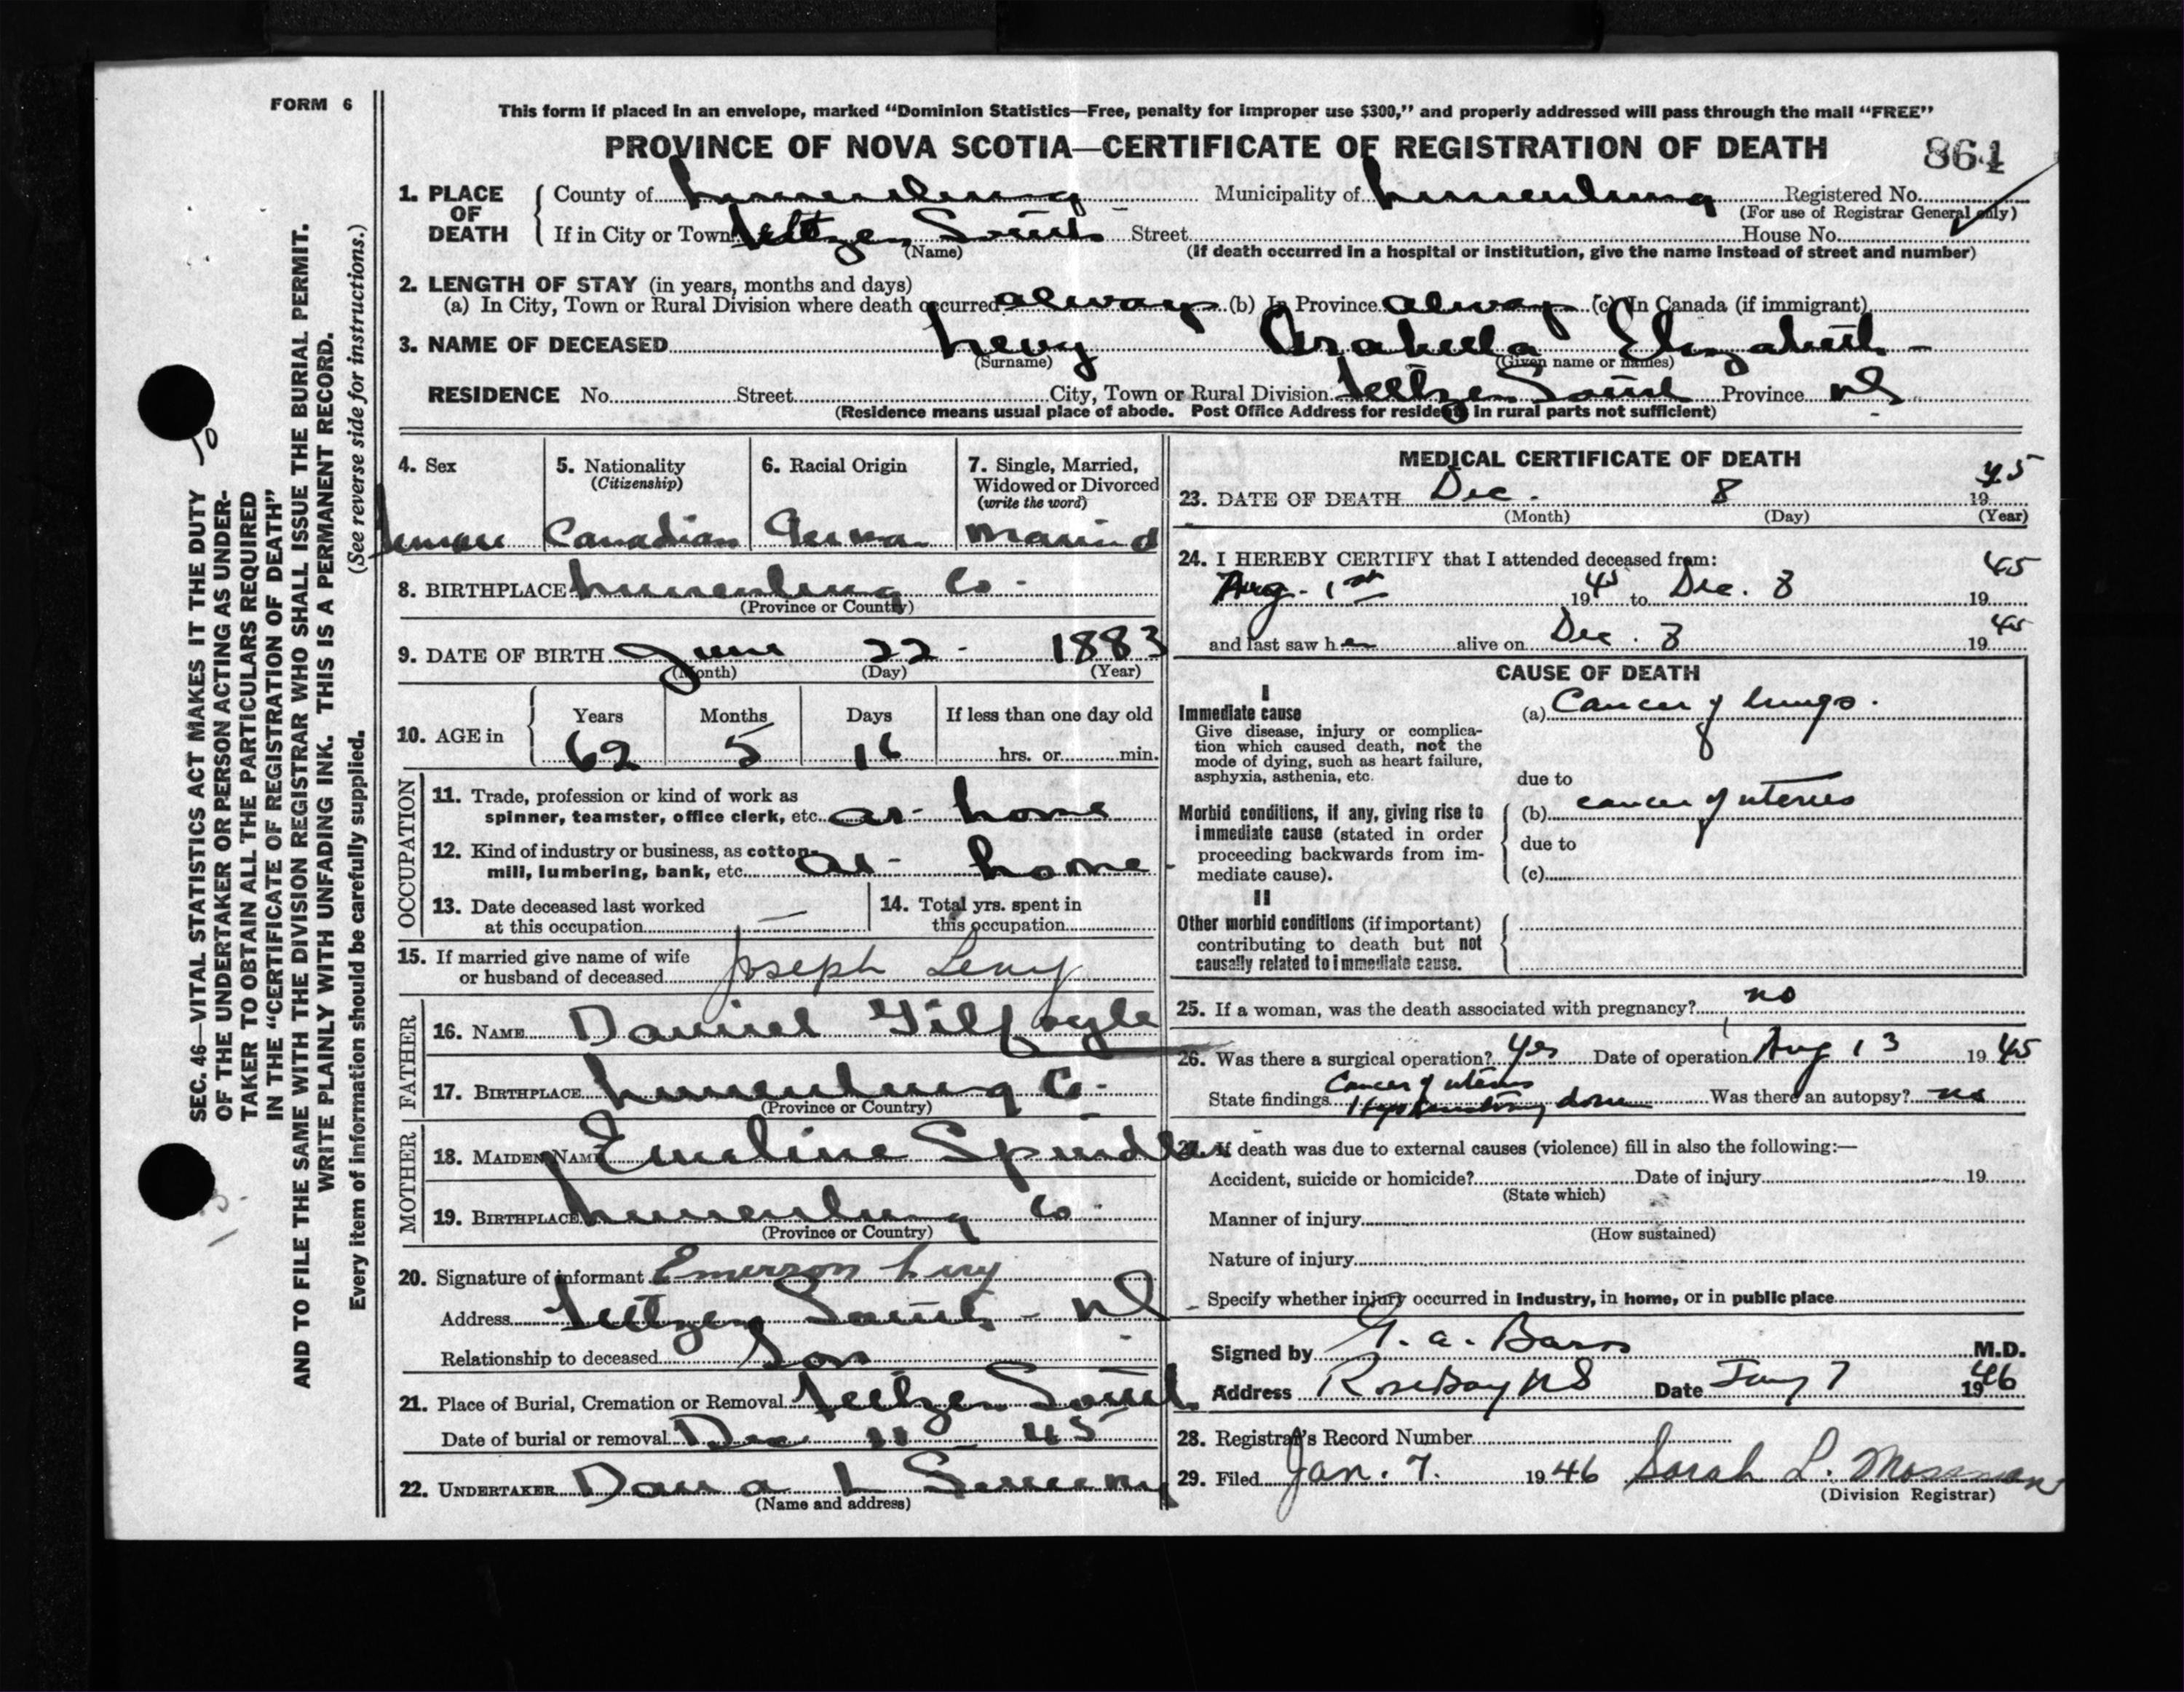 FORM 6
This form if placed in an envelope, marked "Dominion Statistics—Free, penalty for improper use $300," and properly addressed will pass through the mail "FREE"
PROVINCE OF NOVA SCOTIA—CERTIFICATE OF REGISTRATION OF DEATH
861
1. PLACE OF DEATH
County of Lunenburg Municipality of Lunenburg Registered No.
(For use of Registrar General only)
If in City or Town Feltzen South Street House No.
(Name)
(If death occurred in a hospital or institution, give the name instead of street and number)
2. LENGTH OF STAY (in years, months and days)
(a) In City, Town or Rural Division where death occurred always (b) In Province always (c) In Canada (if immigrant)
3. NAME OF DECEASED Levy Arabella Elizabeth
(Surname) (Given name or names)
RESIDENCE No. Street City, Town or Rural Division Feltzen South Province NS
(Residence means usual place of abode. Post Office Address for residents in rural parts not sufficient)
4. Sex
Female
5. Nationality
(Citizenship)
Canadian
6. Racial Origin
German
7. Single, Married,
Widowed or Divorced
(write the word)
Married
8. BIRTHPLACE Lunenburg Co.
(Province or Country)
9. DATE OF BIRTH June 22 1883
(Month) (Day) (Year)
10. AGE in
Years Months Days If less than one day old
62 5 16 hrs. or min.
OCCUPATION
11. Trade, profession or kind of work as
spinner, teamster, office clerk, etc. at home
12. Kind of industry or business, as cotton-
mill, lumbering, bank, etc. at home
13. Date deceased last worked
at this occupation —
14. Total yrs. spent in
this occupation
15. If married give name of wife
or husband of deceased Joseph Levy
FATHER
16. NAME Daniel Gilfoyle
17. BIRTHPLACE Lunenburg Co.
(Province or Country)
MOTHER
18. MAIDEN NAME Emeline Spindler
19. BIRTHPLACE Lunenburg Co.
(Province or Country)
20. Signature of informant Emerson Levy
Address Feltzen South - NS
Relationship to deceased Son
21. Place of Burial, Cremation or Removal Feltzen South
Date of burial or removal Dec 11 45
22. UNDERTAKER Dana L Sweeny
(Name and address)
MEDICAL CERTIFICATE OF DEATH
23. DATE OF DEATH Dec. 8 1945
(Month) (Day) (Year)
24. I HEREBY CERTIFY that I attended deceased from:
Aug. 1st 1945 to Dec. 8 1945
and last saw her alive on Dec. 8 1945
CAUSE OF DEATH
I
Immediate cause
Give disease, injury or complica-
tion which caused death, not the
mode of dying, such as heart failure,
asphyxia, asthenia, etc.
(a) Cancer of lungs.
due to
Morbid conditions, if any, giving rise to
immediate cause (stated in order
proceeding backwards from im-
mediate cause).
(b) cancer of uterus
due to
(c)
II
Other morbid conditions (if important)
contributing to death but not
causally related to immediate cause.
25. If a woman, was the death associated with pregnancy? no
26. Was there a surgical operation? yes Date of operation Aug 13 1945
State findings Cancer of uterus
Hysterectomy done Was there an autopsy? no
27. If death was due to external causes (violence) fill in also the following:—
Accident, suicide or homicide? Date of injury 19
(State which)
Manner of injury
(How sustained)
Nature of injury
Specify whether injury occurred in industry, in home, or in public place
Signed by G. A. Barss M.D.
Address RoseBay NS Date Jany 7 1946
28. Registrar's Record Number
29. Filed Jan. 7. 1946 Sarah L. Mossman
(Division Registrar)
SEC. 46—VITAL STATISTICS ACT MAKES IT THE DUTY
OF THE UNDERTAKER OR PERSON ACTING AS UNDER-
TAKER TO OBTAIN ALL THE PARTICULARS REQUIRED
IN THE "CERTIFICATE OF REGISTRATION OF DEATH"
AND TO FILE THE SAME WITH THE DIVISION REGISTRAR WHO SHALL ISSUE THE BURIAL PERMIT.
WRITE PLAINLY WITH UNFADING INK. THIS IS A PERMANENT RECORD.
Every item of information should be carefully supplied. (See reverse side for instructions.)